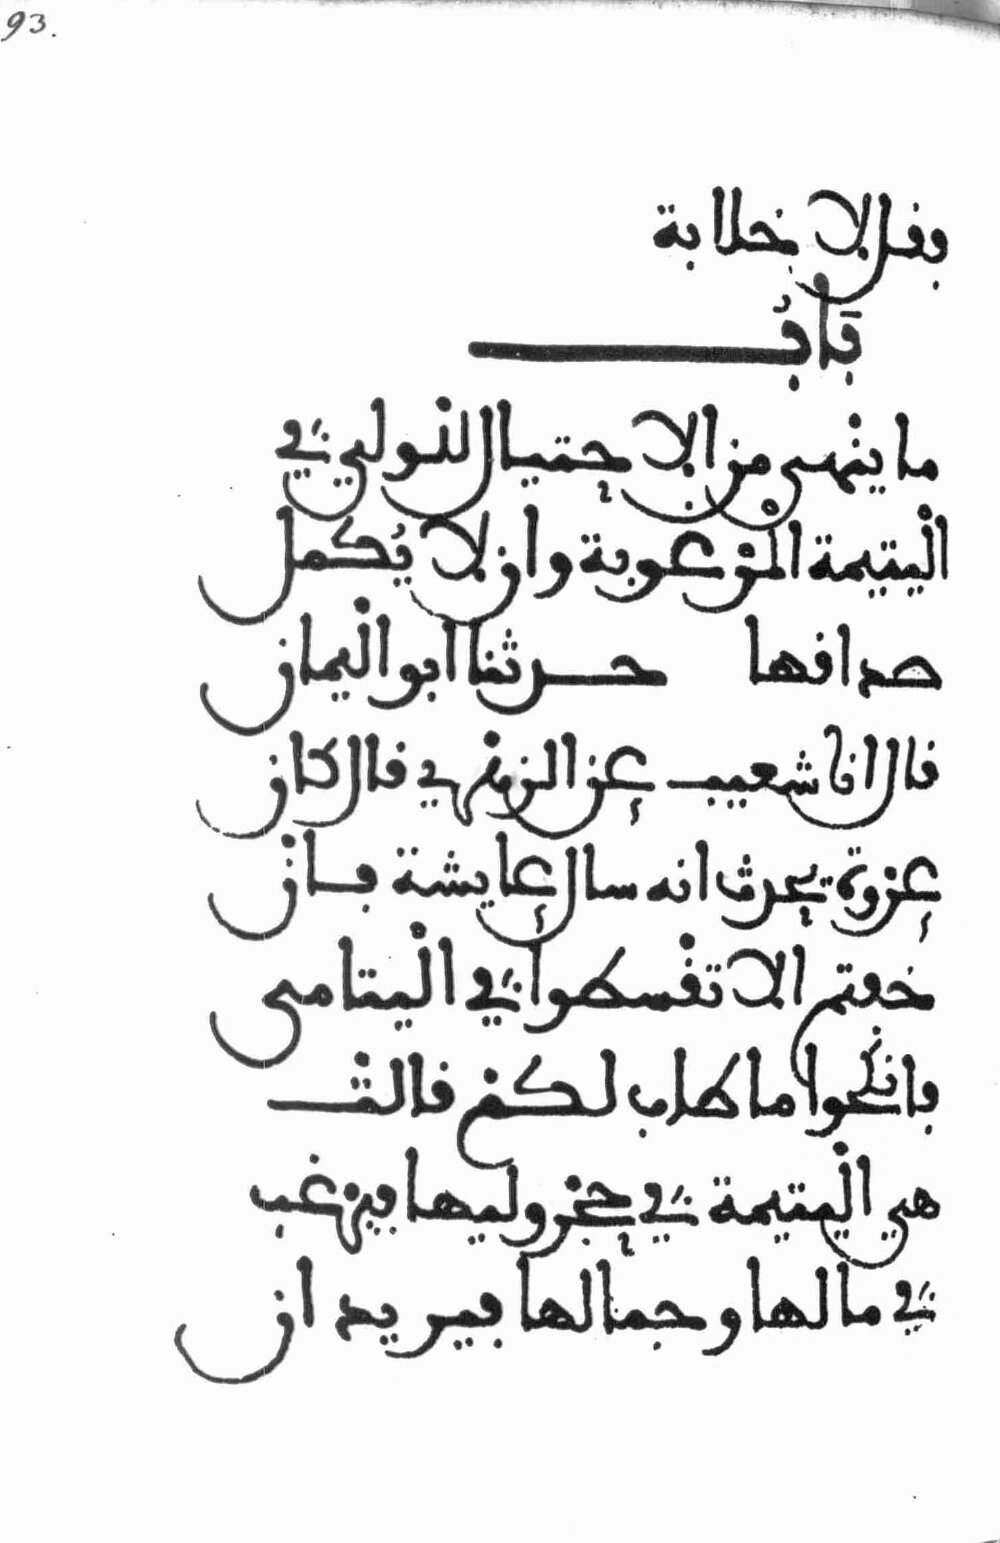 93.
فقل لا خلابة
بَابُ
ما ينهى من الاحتيال للولي في
اليتيمة المرغوبة وان لا يُكمل
صداقها حدثنا ابو اليمان
قال انا شعيب عن الزهري قال كان
عروة يحدث انه سال عايشة فان
خفتم الا تقسطوا في اليتامى
فانكحوا ما طاب لكم قالت
هي اليتيمة في حجر وليها فيرغب
في مالها وجمالها فيريد ان